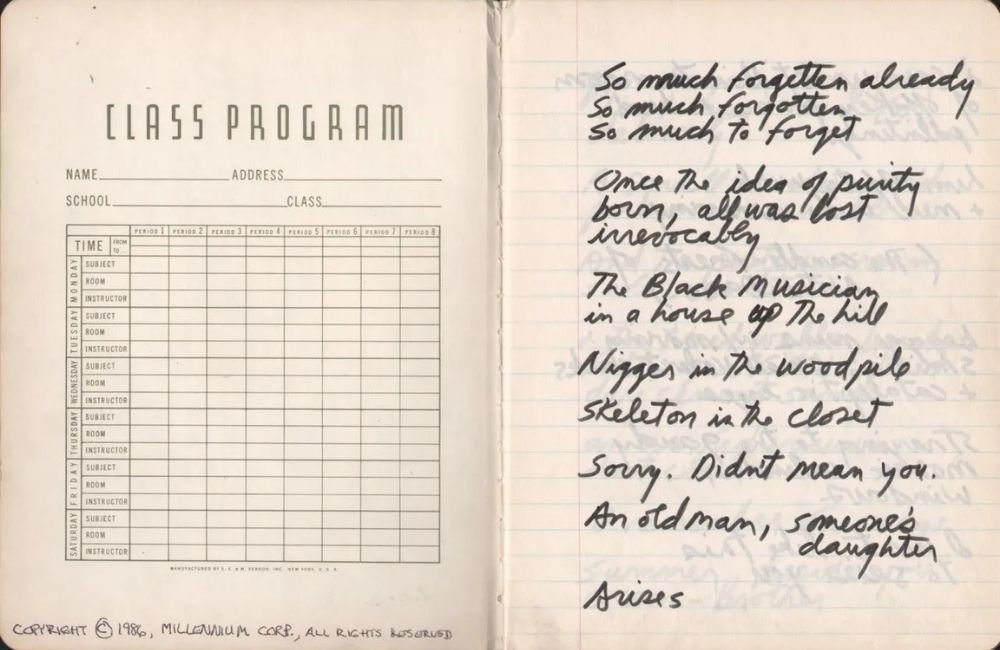 CLASS PROGRAM
NAME ADDRESS
SCHOOL CLASS
PERIOD 1 PERIOD 2 PERIOD 3 PERIOD 4 PERIOD 5 PERIOD 6 PERIOD 7 PERIOD 8
TIME FROM TO
MONDAY
SUBJECT
ROOM
INSTRUCTOR
TUESDAY
SUBJECT
ROOM
INSTRUCTOR
WEDNESDAY
SUBJECT
ROOM
INSTRUCTOR
THURSDAY
SUBJECT
ROOM
INSTRUCTOR
FRIDAY
SUBJECT
ROOM
INSTRUCTOR
SATURDAY
SUBJECT
ROOM
INSTRUCTOR
MANUFACTURED BY S. E. & M. VERNON, INC. NEW YORK, U. S. A.
COPYRIGHT © 1986, MILLENNIUM CORP., ALL RIGHTS RESERVED
So much forgetten already
So much forgotten
So much to forget
Once the idea of purity
born, all was lost
irrevocably
The Black Musician
in a house up the hill
Nigger in the woodpile
Skeleton in the closet
Sorry. Didn't mean you.
An old man, someone's
daughter
Arises